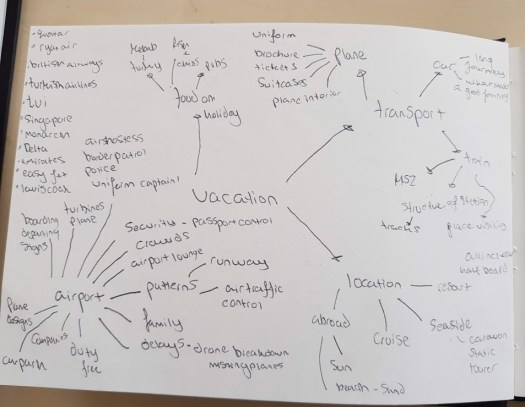 ryanair
british airways
turkish airlines
tui
Singapore
monarch
Delta
emirates
easy jet
Kebab
turkey
fish
chips
pubs
food on
holiday
uniform
brochure
tickets
Suitcases
plane interior
plane
transport
car
long
journeys
a good journey
train
structure of station
tracks
airhostess
border patrol
police
uniform captain
vacation
boarding
signs
turbines
plane
Security - passport control
crowds
airport lounge
patterns
runway
air traffic
control
airport
plane
designs
carpark
Companies
duty
free
family
delays - drone breakdown
missing planes
location
resort
half board
abroad
Sun
beach - Sand
Cruise
Seaside
caravan
static
tourer